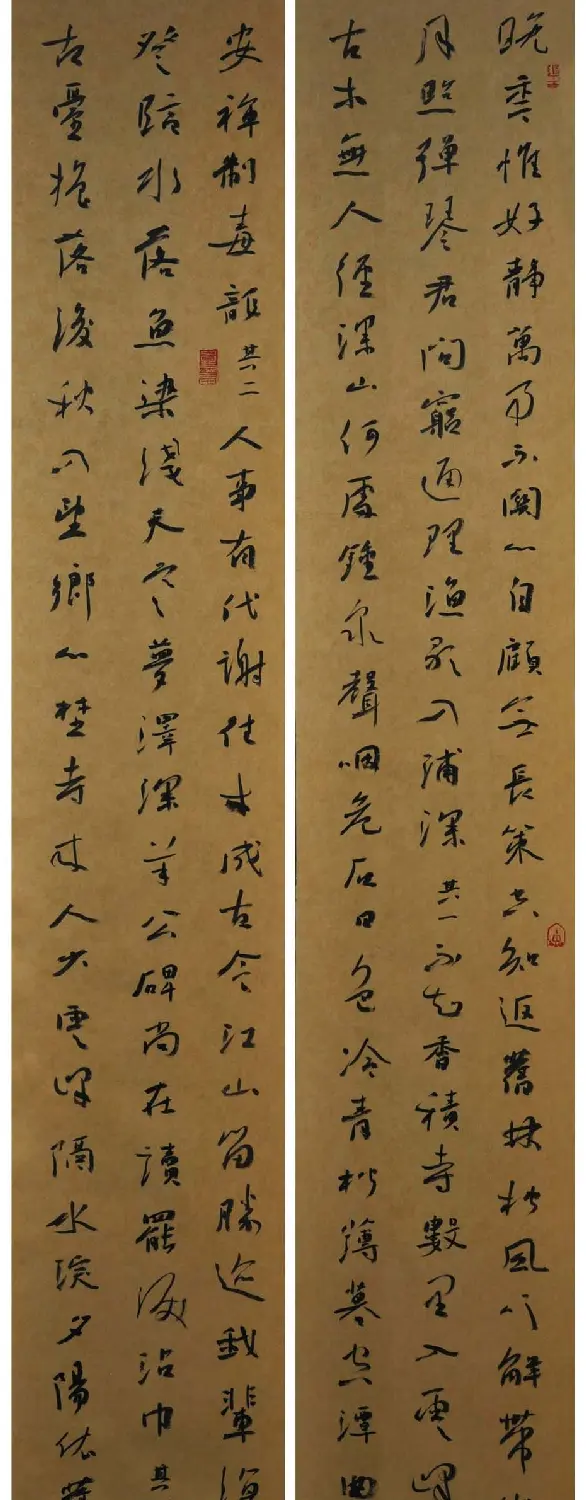 晚年惟好靜萬事不關心自顧無長策空知返舊林松風吹解帶
月照彈琴君問窮通理漁歌入浦深 其一 不知香積寺數里入雲峰
古木無人徑深山何處鐘泉聲咽危石日色冷青松薄暮空潭曲
安禪制毒龍 其二 人事有代謝往來成古今江山留勝迹我輩復
登臨水落魚梁淺天寒夢澤深羊公碑尚在讀罷淚沾巾 其
古臺搖落後秋入望鄉心埜寺來人少雲峰隔水深夕陽依舊